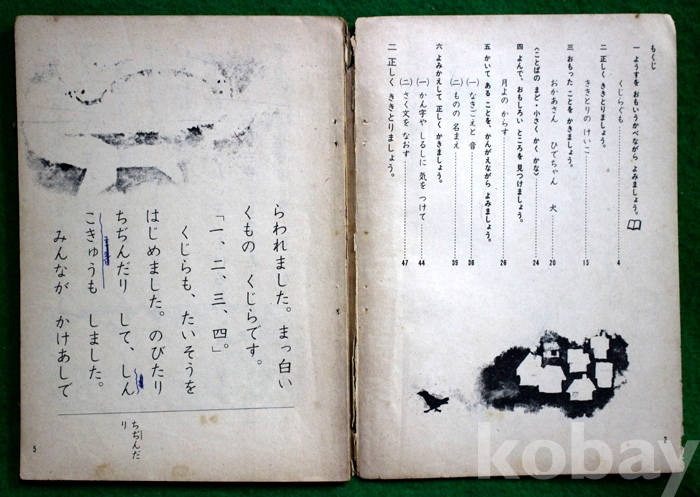 もくじ
一 ようすを おもいうかべながら よみましょう。
くじらぐも 4
二 正しく ききとりましょう。
ききとりの けいこ 15
三 おもった ことを かきましょう。
おかあさん ひでちゃん 犬 20
〈ことばの まど・小さく かく かな〉 24
四 よんで、おもしろい ところを 見つけましょう。
月よの からす 26
五 かいて ある ことを、かんがえながら よみましょう。
(一) なきごえと 音 36
(二) ものの 名まえ 39
六 よみかえして 正しく かきましょう。
(一) かん字や しるしに 気を つけて 44
(二) さく文を なおす 47
二 正しく ききとりましょう。
2
らわれました。まっ白い
くもの くじらです。
「一、二、三、四。」
くじらも、たいそうを
はじめました。のびたり
ちぢんだり して、しん
こきゅうも しました。
みんなが かけあして
ちぢんだ
り
5
kobay